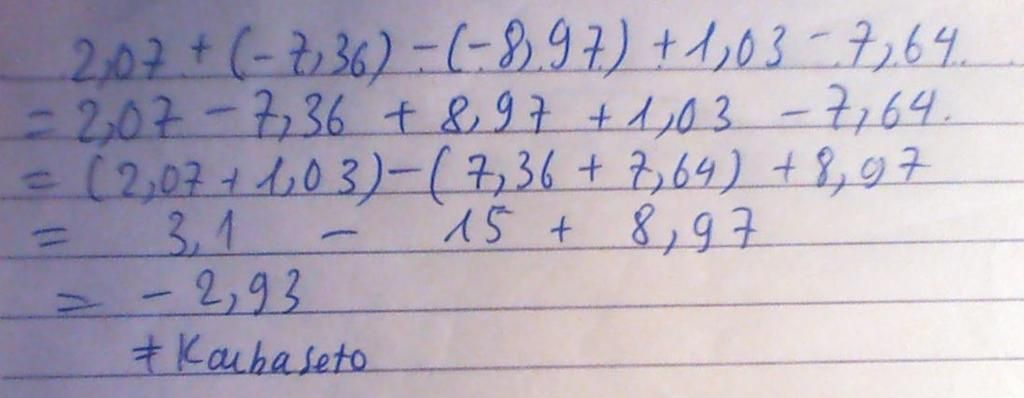 2,07 + (-7,36) - (-8,97) + 1,03 - 7,64.
= 2,07 - 7,36 + 8,97 + 1,03 - 7,64.
= (2,07 + 1,03) - (7,36 + 7,64) + 8,97
= 3,1 - 15 + 8,97
= - 2,93